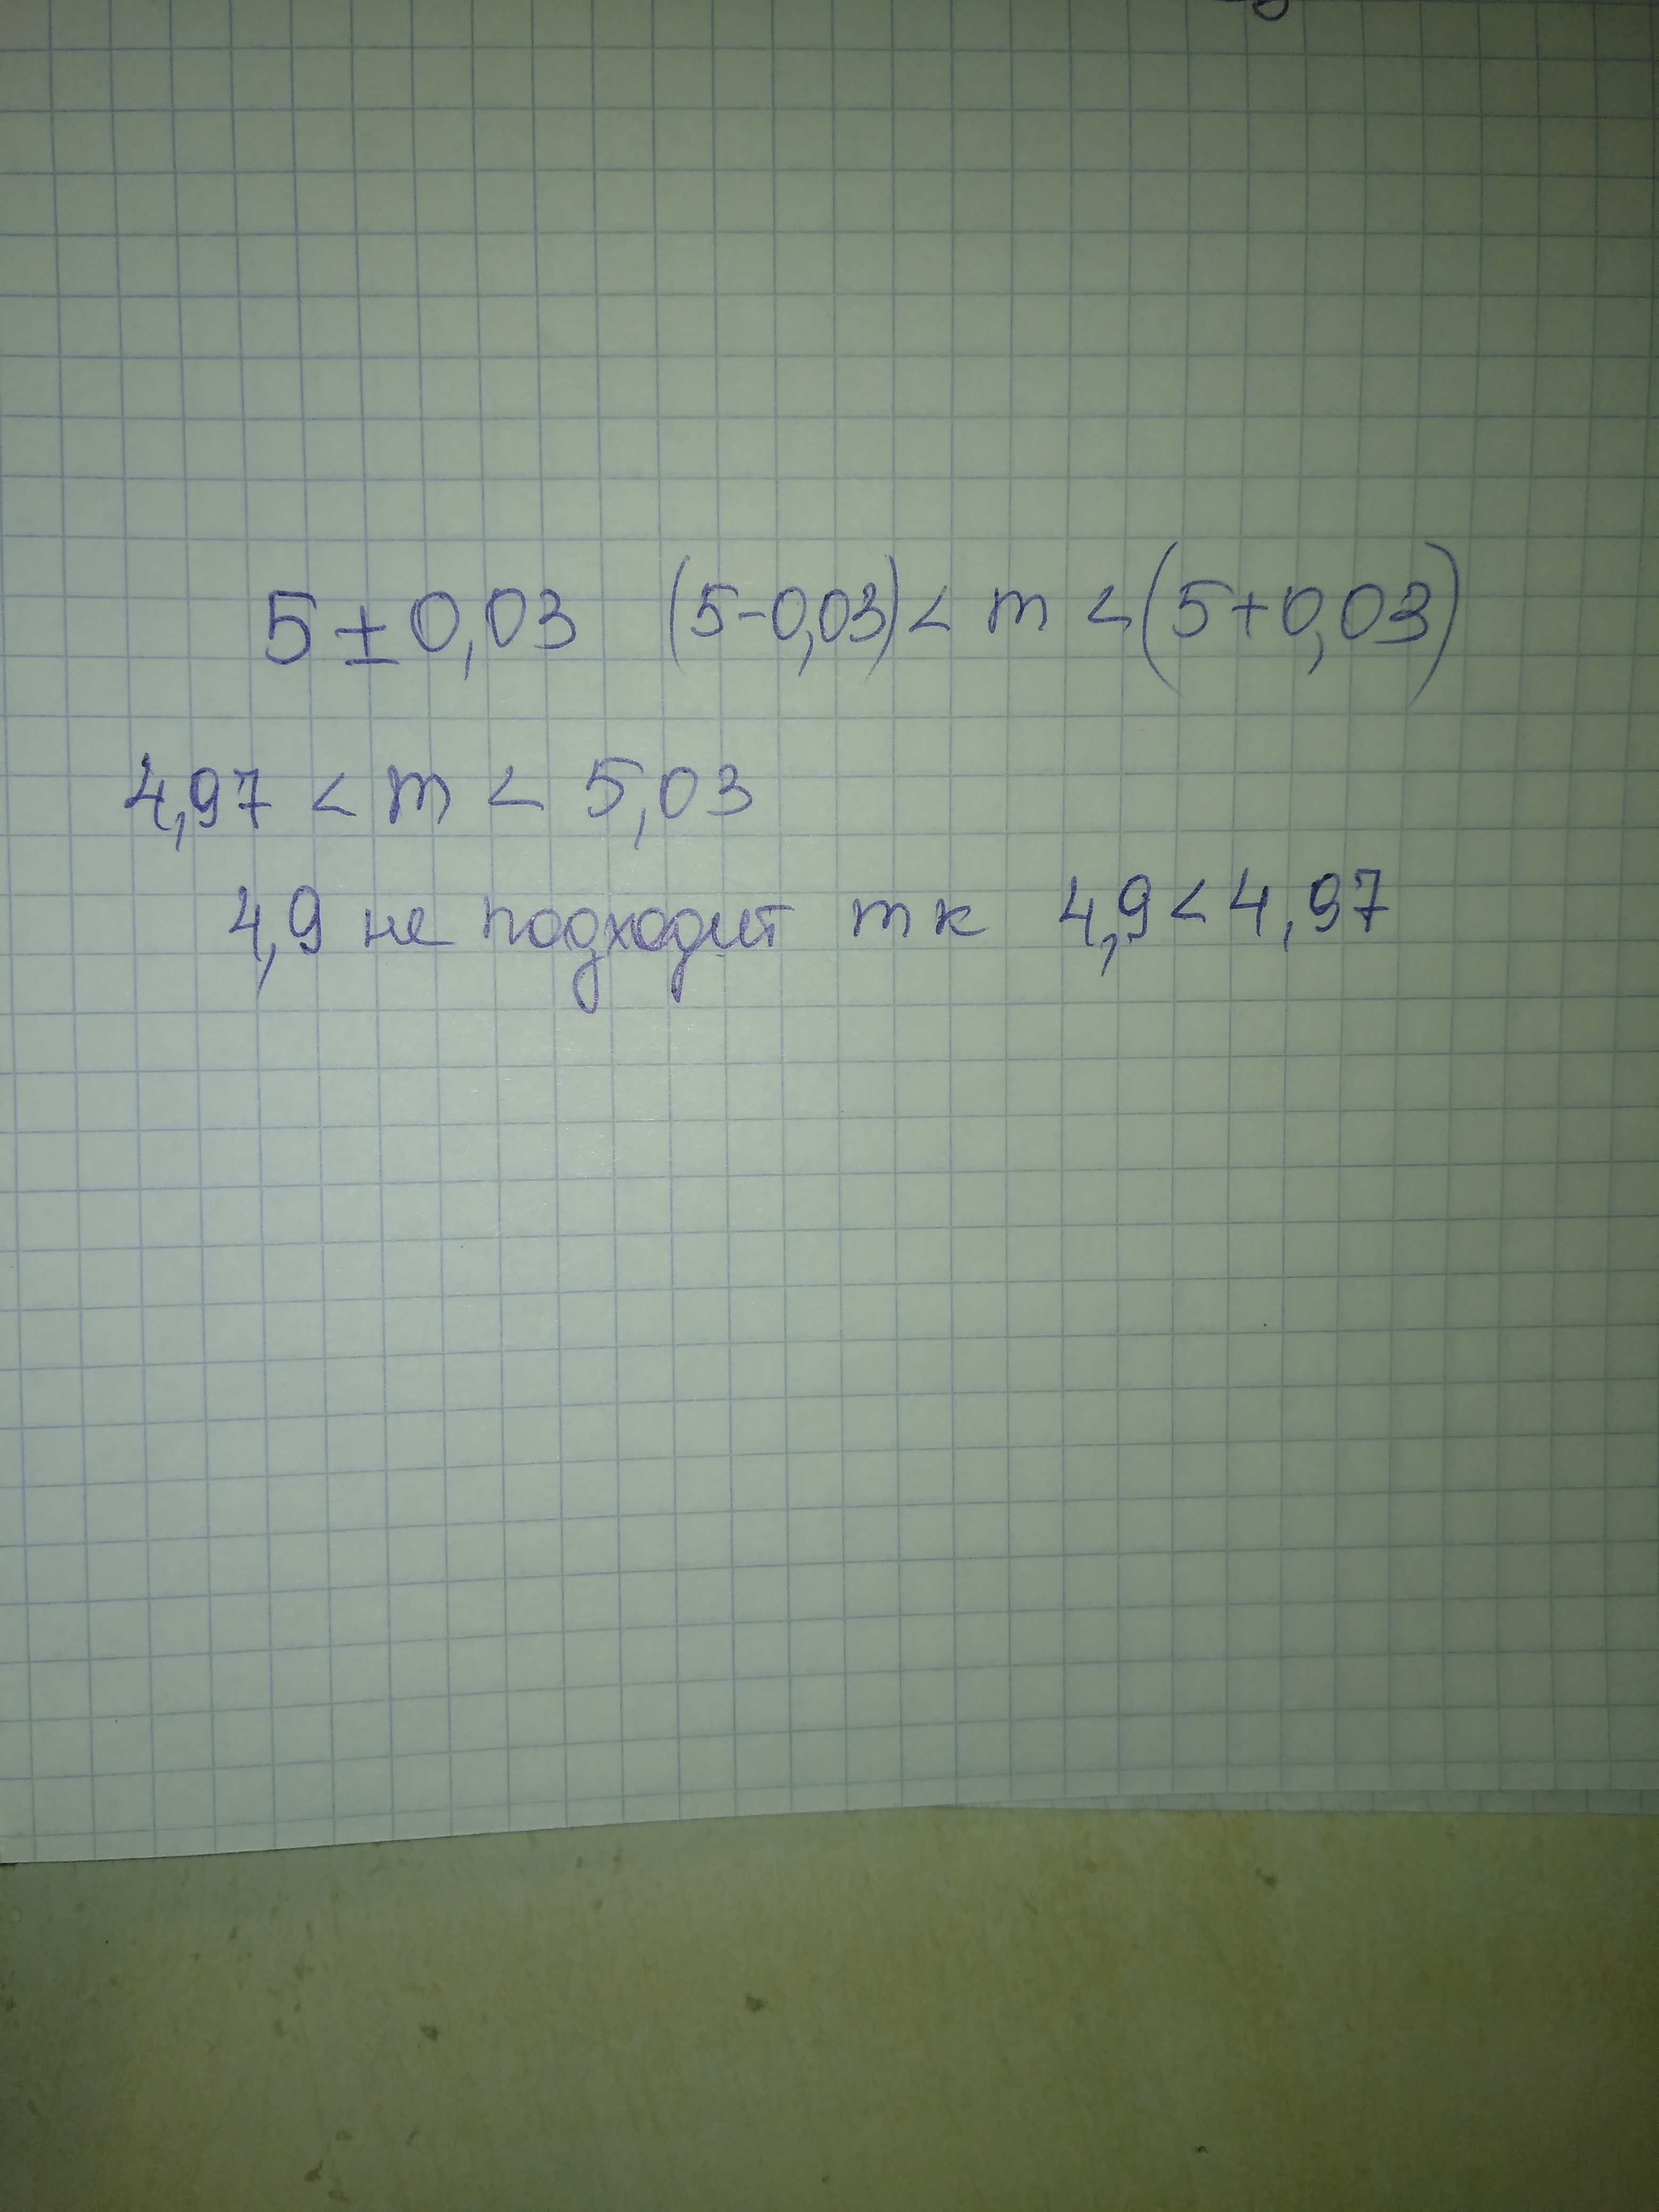 5±0,03 (5-0,03)< m <(5+0,03)
4,97 < m < 5,03
4,9 не подходит тк 4,9<4,97